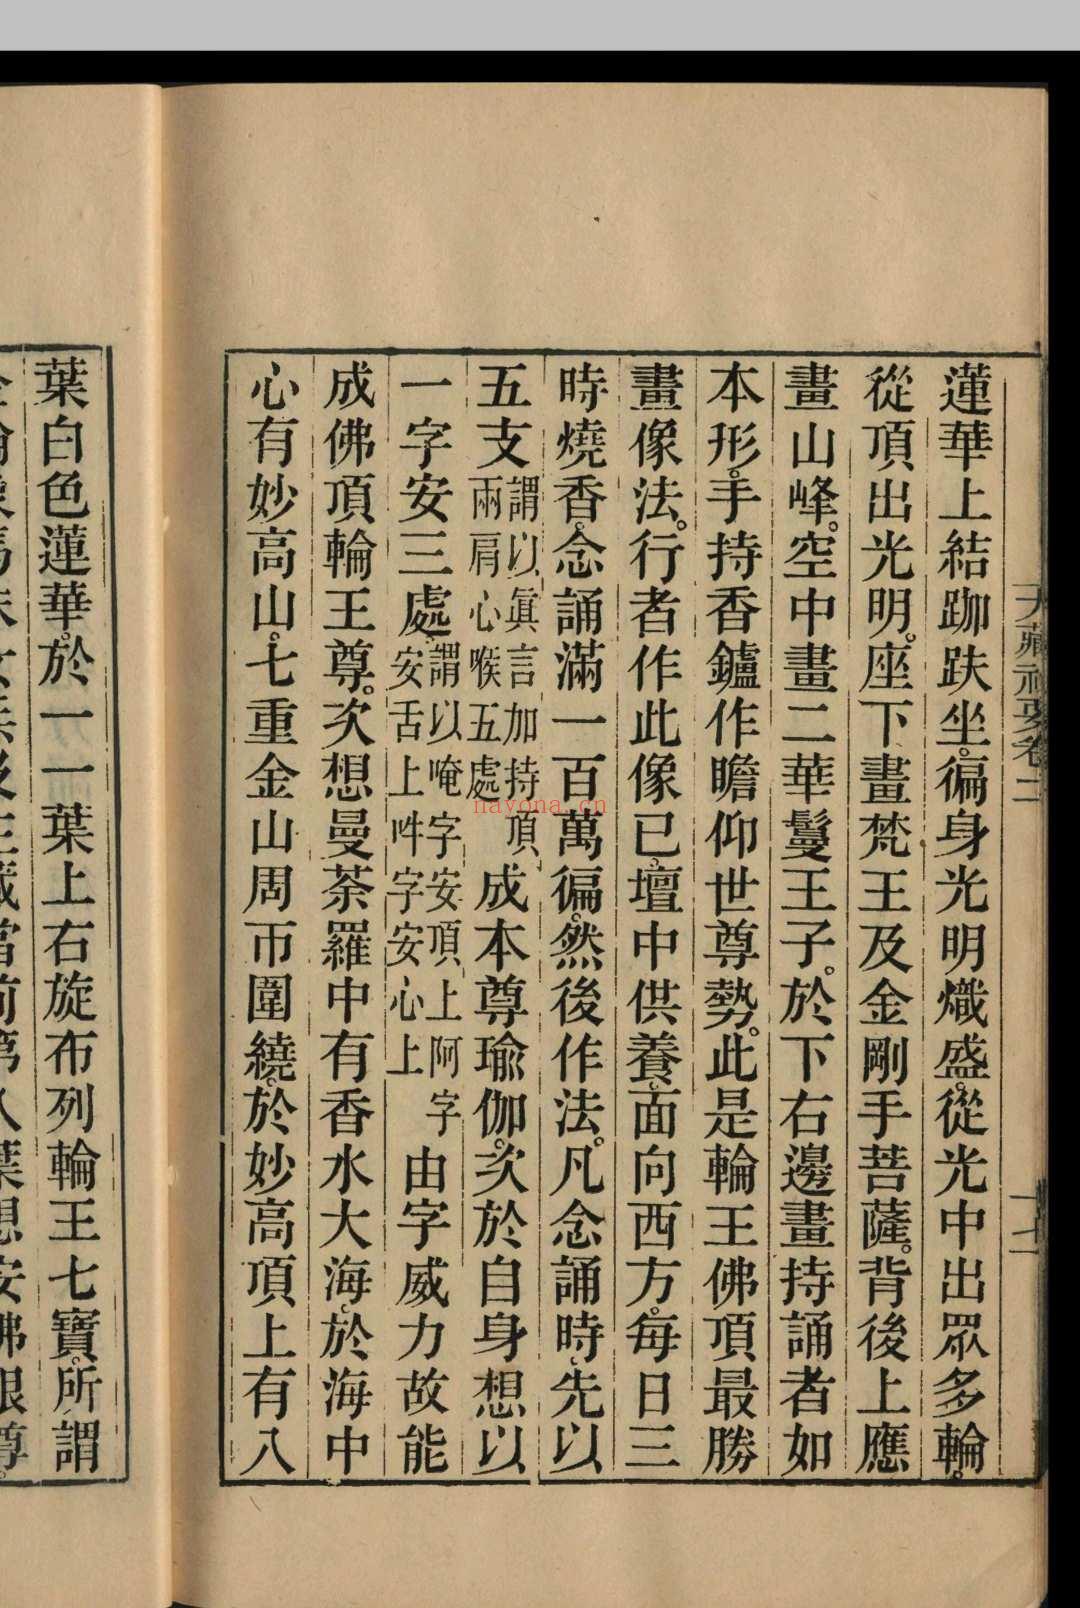 大藏祕要卷二
十七
蓮華上結跏趺坐。徧身光明熾盛。從光中出眾多輪。
從頂出光明。座下畫梵王及金剛手菩薩。背後上應
畫山峰。空中畫二華鬘王子。於下右邊畫持誦者如
本形。手持香鑪作瞻仰世尊勢。此是輪王佛頂最勝
畫像法。行者作此像已。壇中供養。面向西方。每日三
時燒香。念誦滿一百萬徧。然後作法。凡念誦時。先以
五支謂以眞言加持頂、兩肩心喉五處成本尊瑜伽。次於自身想以
一字安三處。謂以唵字安頂上阿字安舌上吽字安心上由字威力故能
成佛頂輪王尊。次想曼荼羅中有香水大海。於海中
心有妙高山。七重金山周帀圍繞。於妙高頂上有八
葉白色蓮華。於一一葉上右旋布列輪王七寶。所謂
navona.cn